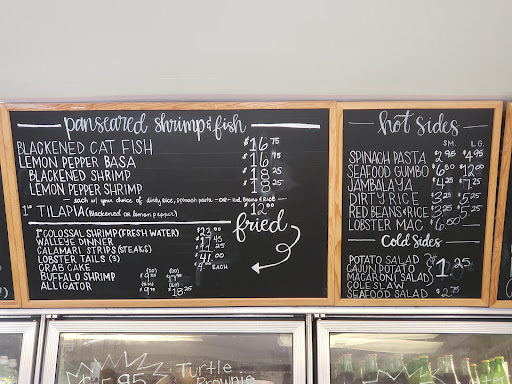 panseared shrimp & fish
BLACKENED CAT FISH $16.75
LEMON PEPPER BASA $16.95
BLACKENED SHRIMP $18.25
LEMON PEPPER SHRIMP $18.25
each w/ your choice of dirty rice, spinach pasta -OR- Red Beans & Rice
TILAPIA (Blackened or lemon pepper) $12.00
fried
COLOSSAL SHRIMP (FRESH WATER) $23.00
WALLEYE DINNER
CALAMARI STRIPS (STEAKS)
LOBSTER TAILS (3) $41.00
CRAB CAKE EACH
BUFFALO SHRIMP
ALLIGATOR $18.25
hot sides
SM. LG.
SPINACH PASTA $2.95 $4.95
SEAFOOD GUMBO $6.50 $12.00
JAMBALAYA $4.25 $7.25
DIRTY RICE $3.25 $5.25
RED BEANS & RICE $3.25 $5.25
LOBSTER MAC $6.50
COLD SIDES
POTATO SALAD
CAJUN POTATO
MACARONI SALAD $1.25
COLE SLAW
SEAFOOD SALAD $2.75
Turtle
Brownie